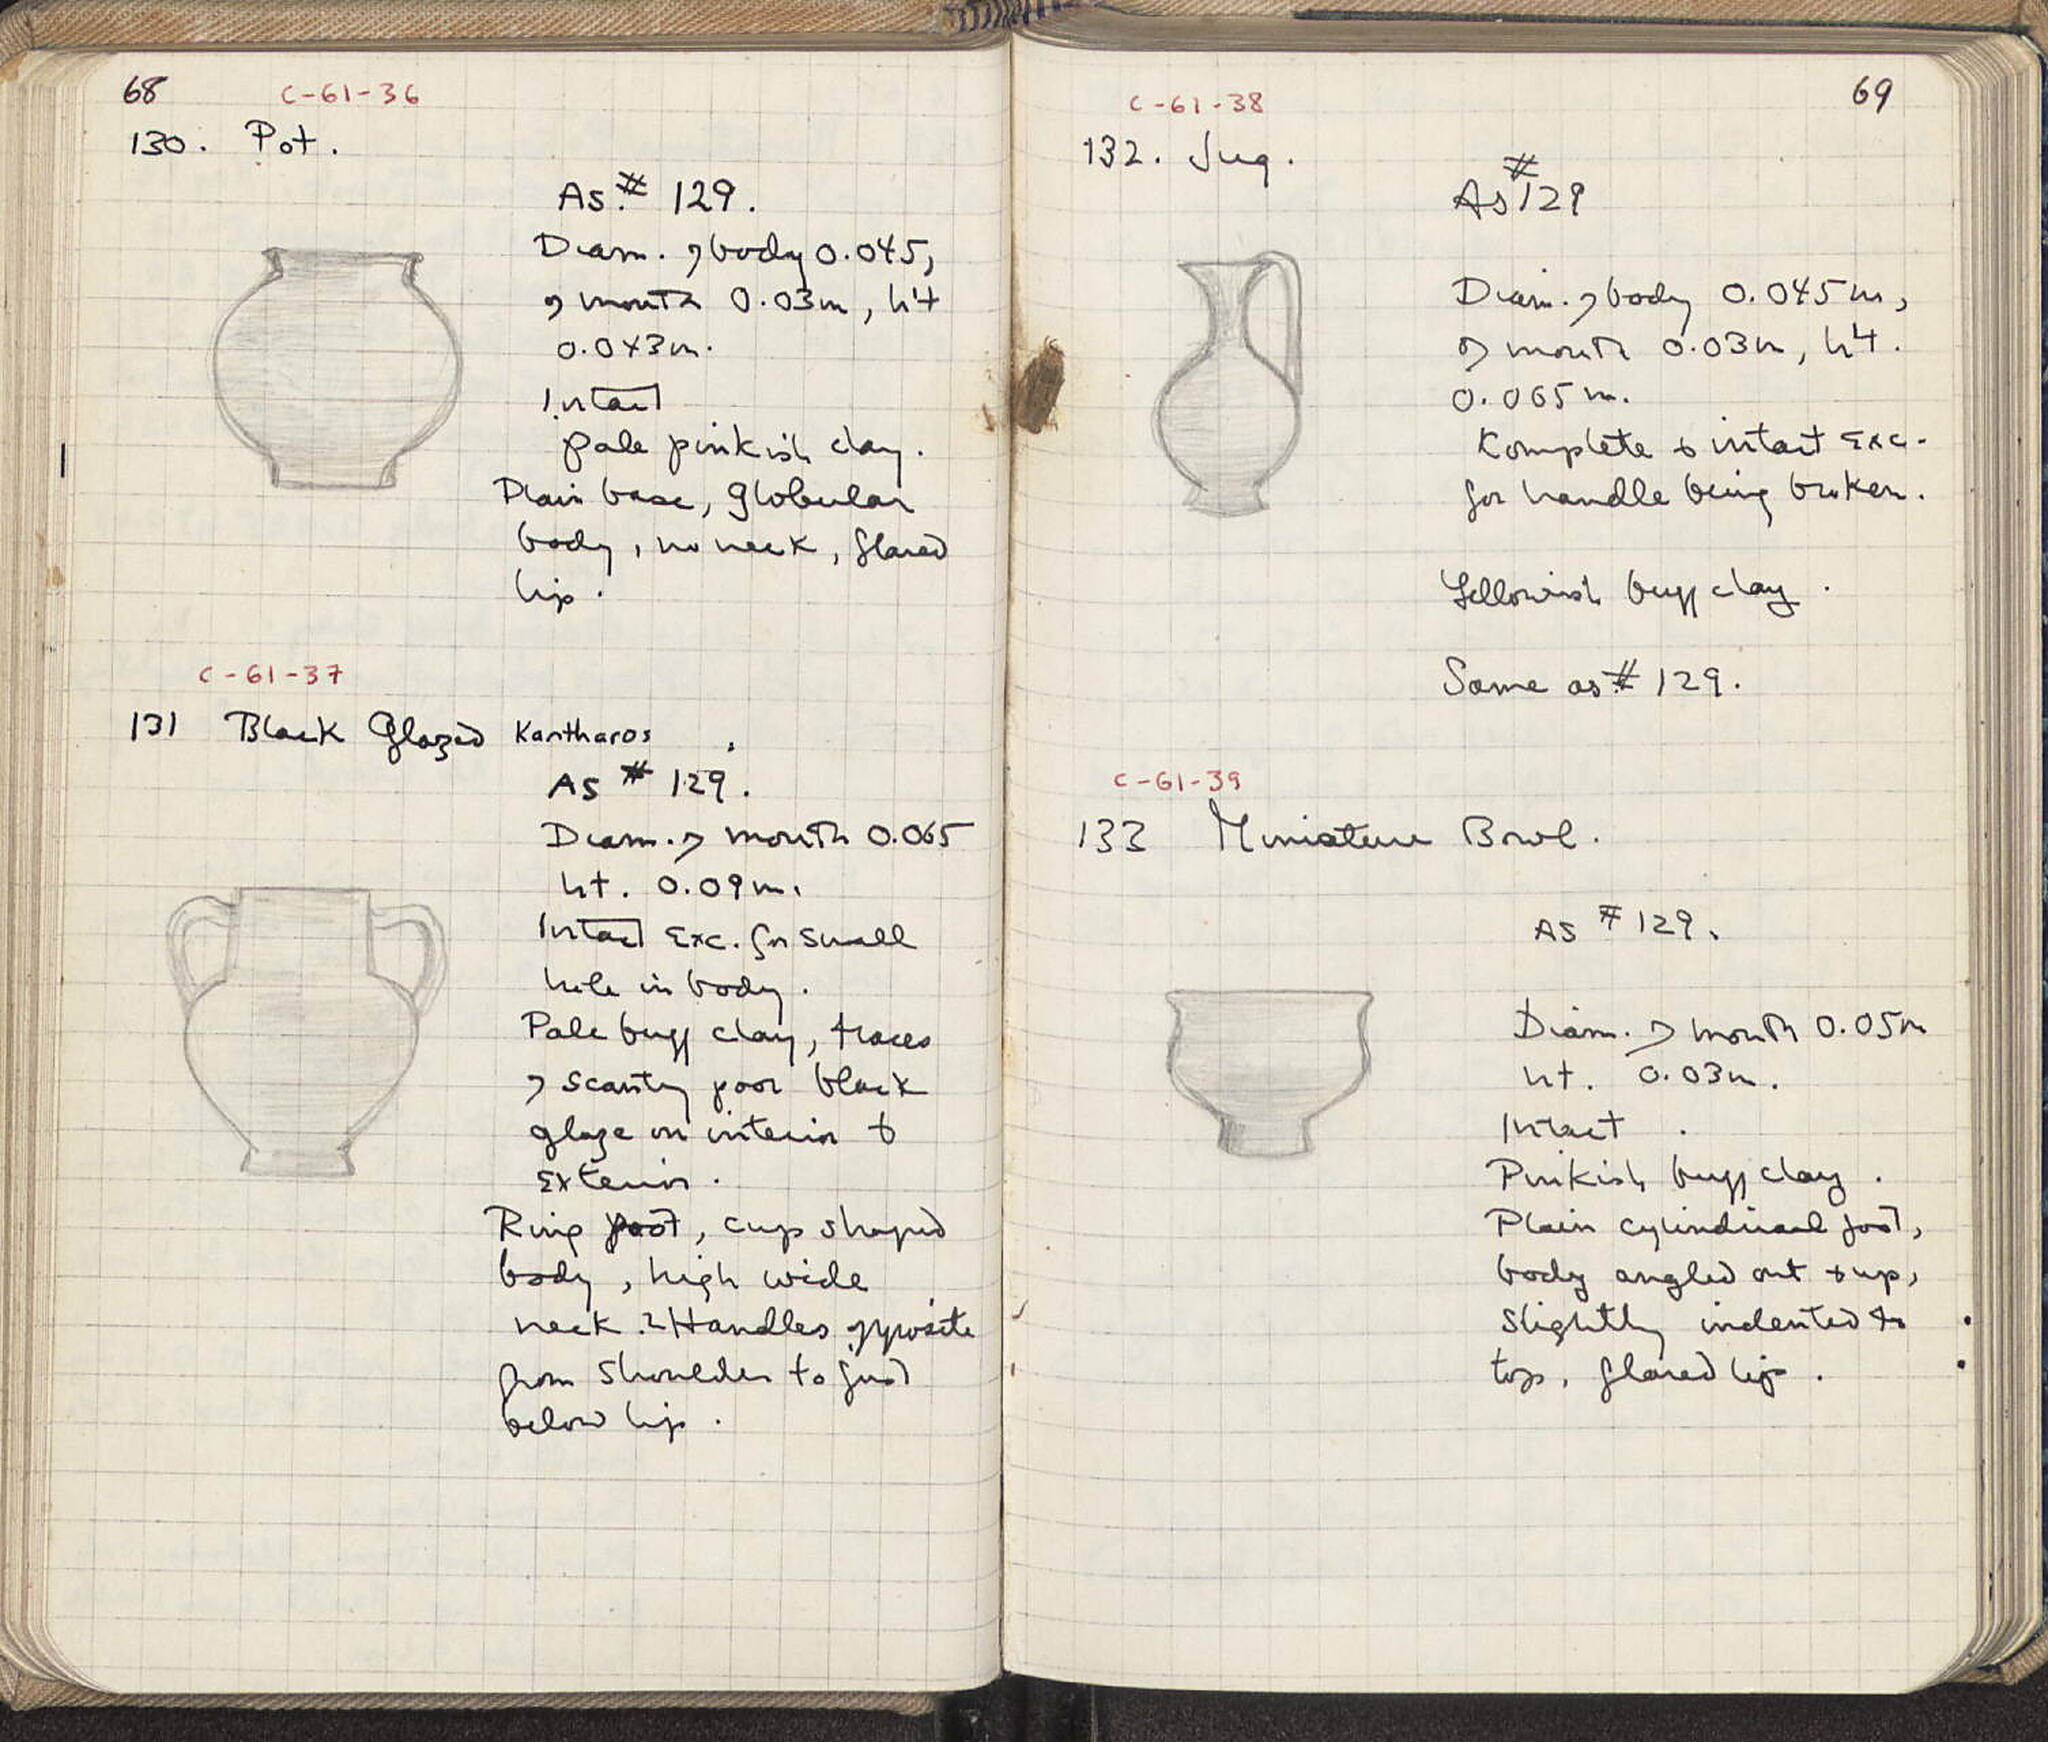 68
C-61-36
130. Pot.
As # 129.
Diam. of body 0.045,
of mouth 0.03m, ht
0.043m.
Intact
pale pinkish clay.
Plain base, globular
body, no neck, flared
lip.
C-61-37
131 Black Glazed Kantharos.
As # 129.
Diam. of mouth 0.065
ht. 0.09m.
Intact Exc. for small
hole in body.
Pale buff clay, traces
of scanty poor black
glaze on interior &
Exterior.
Ring foot, cup shaped
body, high wide
neck. 2 Handles opposite
from shoulder to just
below lip.
69
C-61-38
132. Jug.
As # 129
Diam. of body 0.045m,
of mouth 0.03m, ht.
0.065m.
Komplete & intact Exc.
for handle being broken.
Yellowish buff clay.
Same as # 129.
C-61-39
133 Miniature Bowl.
As # 129.
Diam. of mouth 0.05m
ht. 0.03m.
Intact.
Pinkish buff clay.
Plain cylindrical foot,
body angled out & up,
slightly indented to
top, flared lip.